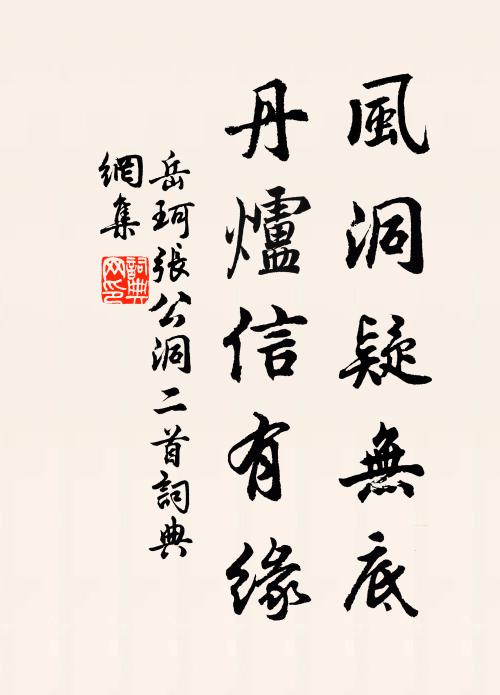 風洞疑無底
丹爐信有緣
岳珂張公洞二首詞典
網集
詞典網印